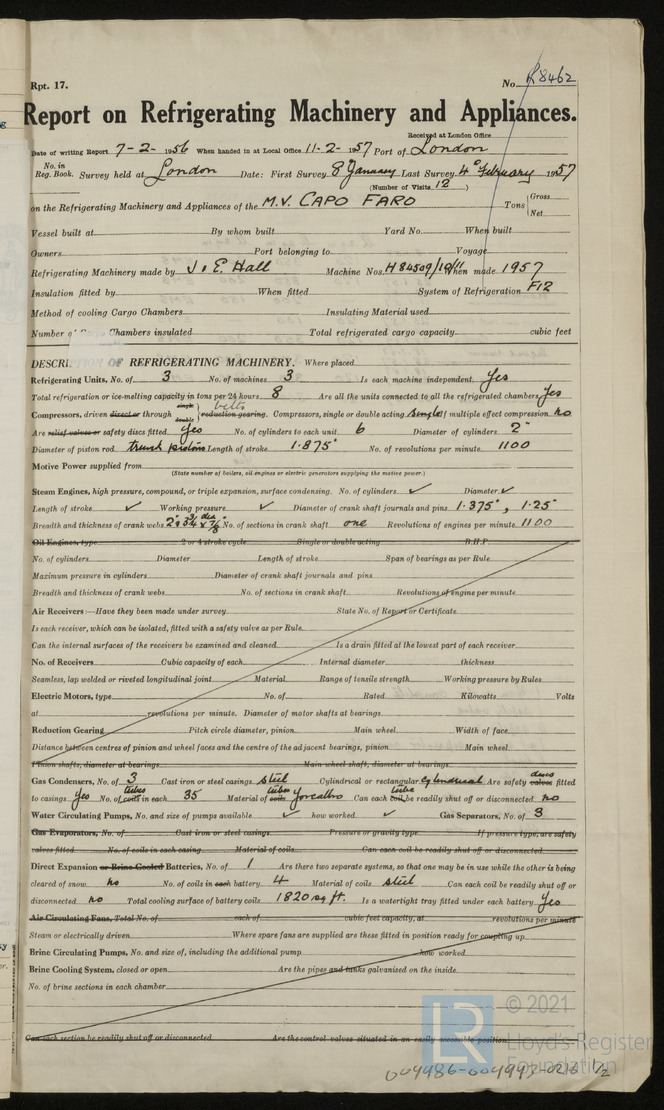 Rpt. 17.
No. 28462
Report on Refrigerating Machinery and Appliances.
Received at London Office
Date of writing Report 7-2-1956 When handed in at Local Office 11-2-1957 Port of London
No. in Reg. Book. Survey held at London Date: First Survey 8 January Last Survey 4th February 1957
(Number of Visits 12)
on the Refrigerating Machinery and Appliances of the M.V. CAPO FARO Tons Gross Net
Vessel built at By whom built Yard No. When built
Owners Port belonging to Voyage
Refrigerating Machinery made by J. & E. Hall Machine Nos. H84509/10/11 When made 1957
Insulation fitted by When fitted System of Refrigeration F12
Method of cooling Cargo Chambers Insulating Material used
Number Chambers insulated Total refrigerated cargo capacity cubic feet
DESCRIPTION OF REFRIGERATING MACHINERY. Where placed
Refrigerating Units, No. of 3 No. of machines 3 Is each machine independent Yes
Total refrigeration or ice-melting capacity in tons per 24 hours 8 Are all the units connected to all the refrigerated chambers Yes
Compressors, driven direct or through single double belts reduction gearing. Compressors, single or double acting Single If multiple effect compression no
Are relief valves or safety discs fitted Yes No. of cylinders to each unit 6 Diameter of cylinders 2"
Diameter of piston rod trunk pistons Length of stroke 1.875" No. of revolutions per minute 1100
Motive Power supplied from
(State number of boilers, oil engines or electric generators supplying the motive power.)
Steam Engines, high pressure, compound, or triple expansion, surface condensing. No. of cylinders ✓ Diameter ✓
Length of stroke ✓ Working pressure ✓ Diameter of crank shaft journals and pins 1.375", 1.25"
Breadth and thickness of crank webs No. of sections in crank shaft one Revolutions of engines per minute 1100
Oil Engines, type 2 or 4 stroke cycle Single or double acting B.H.P.
No. of cylinders Diameter Length of stroke Span of bearings as per Rule
Maximum pressure in cylinders Diameter of crank shaft journals and pins
Breadth and thickness of crank webs No. of sections in crank shaft Revolutions of engine per minute
Air Receivers:—Have they been made under survey State No. of Report or Certificate
Is each receiver, which can be isolated, fitted with a safety valve as per Rule
Can the internal surfaces of the receivers be examined and cleaned Is a drain fitted at the lowest part of each receiver
No. of Receivers Cubic capacity of each Internal diameter thickness
Seamless, lap welded or riveted longitudinal joint Material Range of tensile strength Working pressure by Rules
Electric Motors, type No. of Rated Kilowatts Volts
at revolutions per minute. Diameter of motor shafts at bearings
Reduction Gearing Pitch circle diameter, pinion Main wheel Width of face
Distance between centres of pinion and wheel faces and the centre of the adjacent bearings, pinion Main wheel
Pinion shafts, diameter at bearings Main wheel shaft, diameter at bearings
Gas Condensers, No. of 3 Cast iron or steel casings steel Cylindrical or rectangular cylindrical Are safety valves discs fitted
to casings Yes No. of coils tubes in each 35 Material of coils tubes Yorcalbro Can each coil tube be readily shut off or disconnected no
Water Circulating Pumps, No. and size of pumps available ✓ how worked ✓ Gas Separators, No. of 3
Gas Evaporators, No. of Cast iron or steel casings Pressure or gravity type If pressure type, are safety
valves fitted No. of coils in each casing Material of coils Can each coil be readily shut off or disconnected
Direct Expansion or Brine Cooled Batteries, No. of 1 Are there two separate systems, so that one may be in use while the other is being
cleared of snow no No. of coils in each battery 4 Material of coils steel Can each coil be readily shut off or
disconnected no Total cooling surface of battery coils 1820 sq ft. Is a watertight tray fitted under each battery Yes
Air Circulating Fans, Total No. of each of cubic feet capacity, at revolutions per minute
Steam or electrically driven Where spare fans are supplied are these fitted in position ready for coupling up
Brine Circulating Pumps, No. and size of, including the additional pump how worked
Brine Cooling System, closed or open Are the pipes and tanks galvanised on the inside
No. of brine sections in each chamber
Can each section be readily shut off or disconnected Are the control valves situated in an easily accessible position
LR © 2021
Lloyd's Register
Foundation
004486-004493-0216 1/2